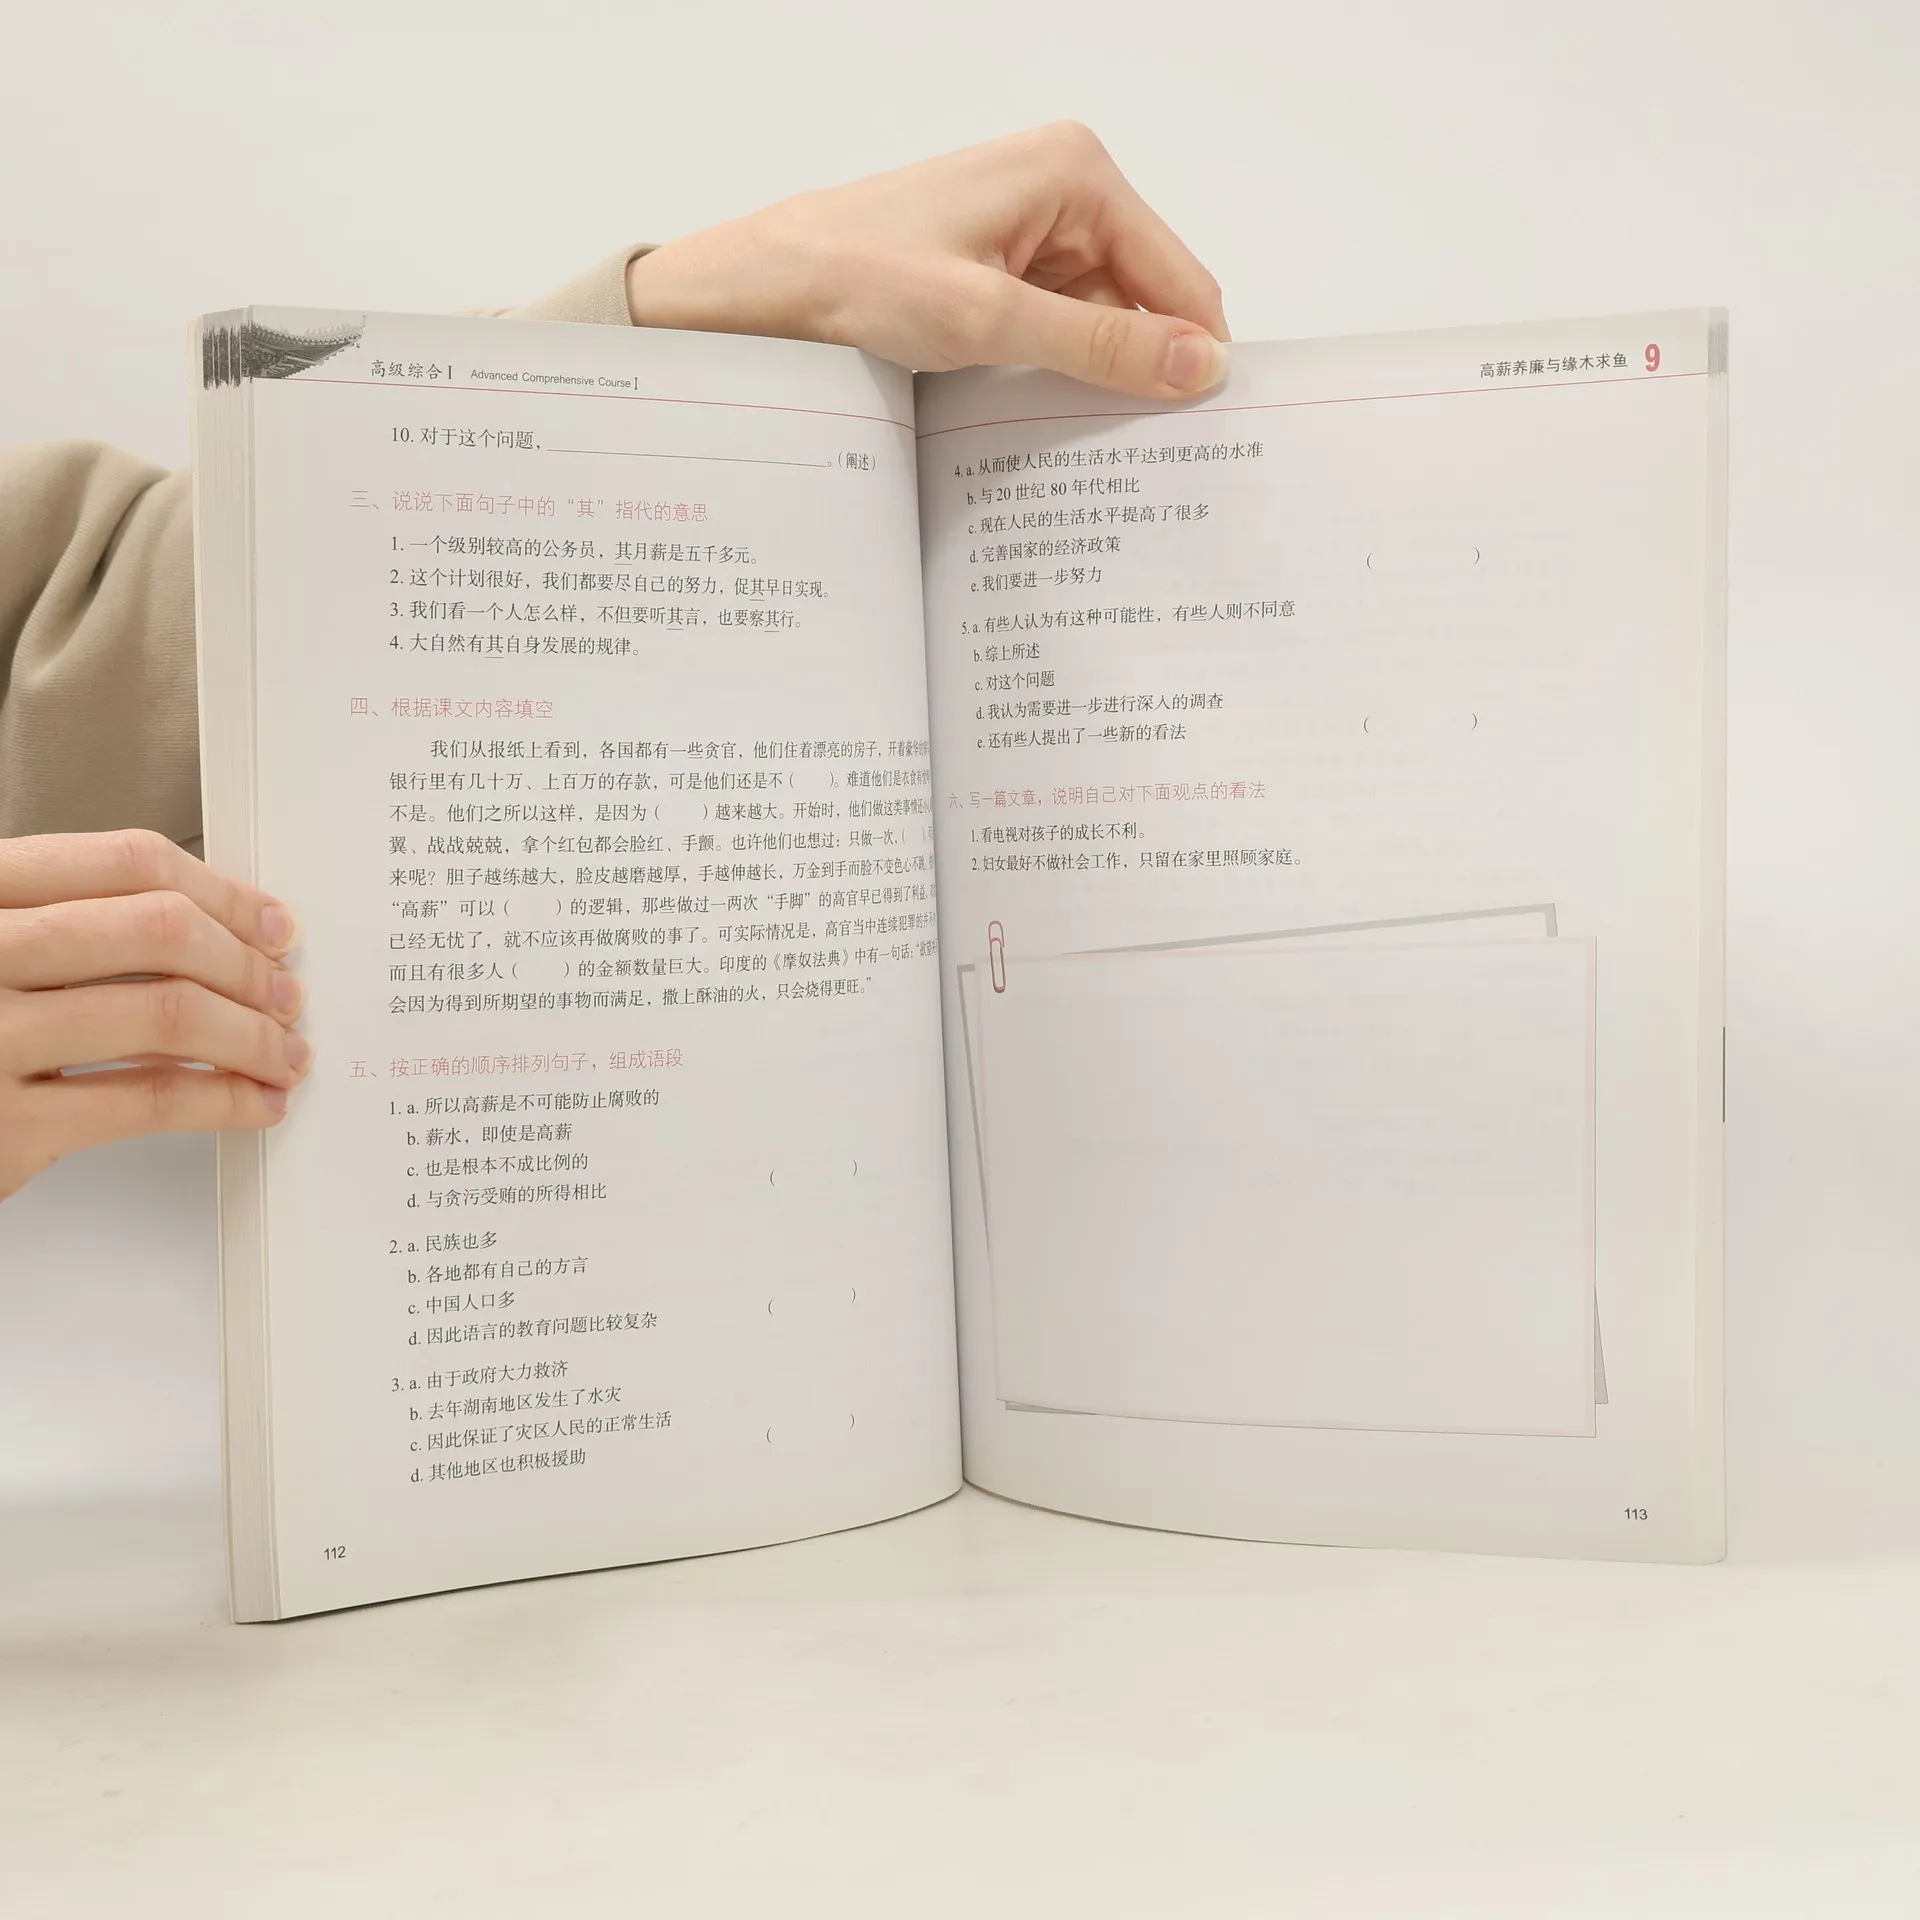 高级综合Ⅰ Advanced Comprehensive Course Ⅰ
10. 对于这个问题，____________________。（阐述）
三、说说下面句子中的“其”指代的意思
1. 一个级别较高的公务员，其月薪是五千多元。
2. 这个计划很好，我们都要尽自己的努力，促其早日实现。
3. 我们看一个人怎么样，不但要听其言，也要察其行。
4. 大自然有其自身发展的规律。
四、根据课文内容填空
我们从报纸上看到，各国都有一些贪官，他们住着漂亮的房子，开着豪华
银行里有几十万、上百万的存款，可是他们还是不（ ）。难道他们是衣食有忧
不是。他们之所以这样，是因为（ ）越来越大。开始时，他们做这类事情还小
翼、战战兢兢，拿个红包都会脸红、手颤。也许他们也想过：只做一次，（ ）
来呢？胆子越练越大，脸皮越磨越厚，手越伸越长，万金到手而脸不变色心不跳。
“高薪”可以（ ）的逻辑，那些做过一两次“手脚”的高官早已得到了利益，
已经无忧了，就不应该再做腐败的事了。可实际情况是，高官当中连续犯罪的并不
而且有很多人（ ）的金额数量巨大。印度的《摩奴法典》中有一句话：“欲望
会因为得到所期望的事物而满足，撒上酥油的火，只会烧得更旺。”
五、按正确的顺序排列句子，组成语段
1. a. 所以高薪是不可能防止腐败的
b. 薪水，即使是高薪
c. 也是根本不成比例的
d. 与贪污受贿的所得相比 （ ）
2. a. 民族也多
b. 各地都有自己的方言
c. 中国人口多
d. 因此语言的教育问题比较复杂 （ ）
3. a. 由于政府大力救济
b. 去年湖南地区发生了水灾
c. 因此保证了灾区人民的正常生活
d. 其他地区也积极援助 （ ）
112
高薪养廉与缘木求鱼 9
4. a. 从而使人民的生活水平达到更高的水准
b. 与 20 世纪 80 年代相比
c. 现在人民的生活水平提高了很多
d. 完善国家的经济政策
e. 我们要进一步努力 （ ）
5. a. 有些人认为有这种可能性，有些人则不同意
b. 综上所述
c. 对这个问题
d. 我认为需要进一步进行深入的调查
e. 还有些人提出了一些新的看法 （ ）
六、写一篇文章，说明自己对下面观点的看法
1. 看电视对孩子的成长不利。
2. 妇女最好不做社会工作，只留在家里照顾家庭。
113